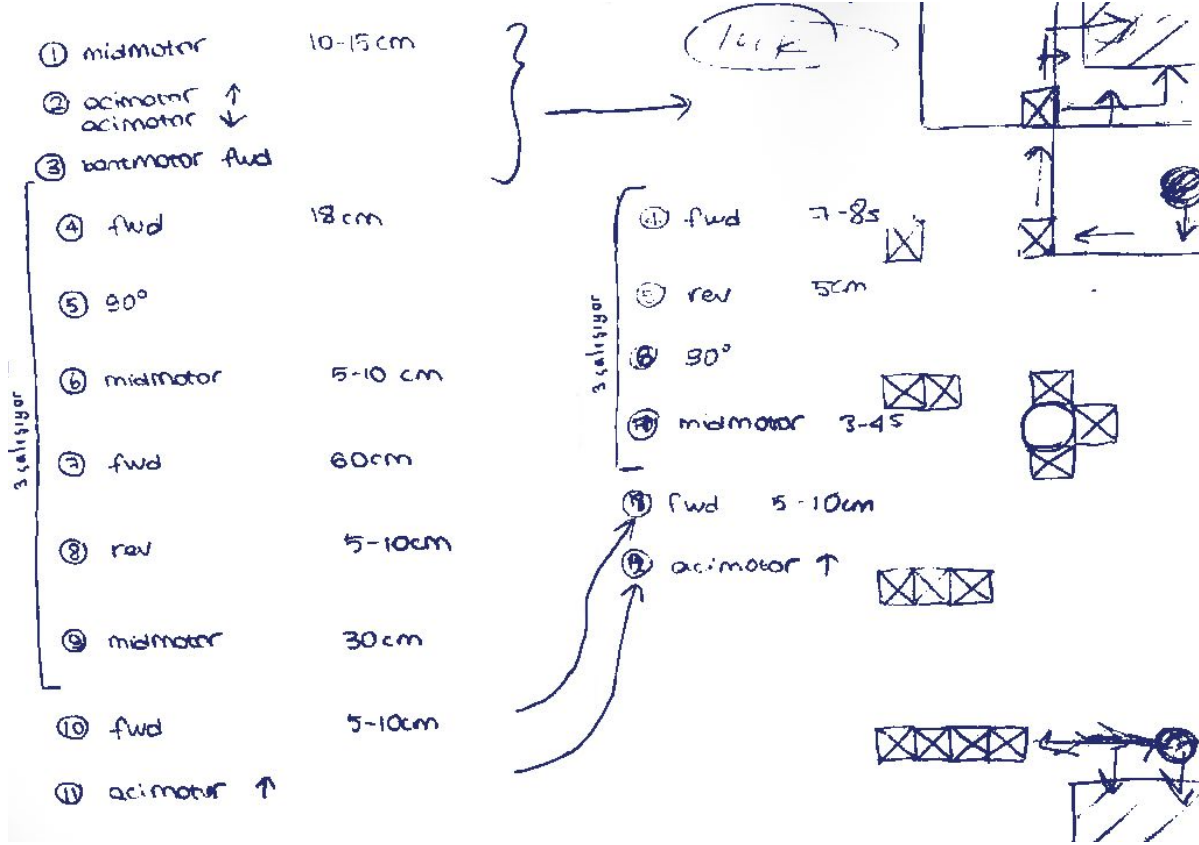 ① midmotor 10-15cm
② acimotor ↑
acimotor ↓
③ bantmotor fwd
3 çalışıyor
④ fwd 18cm
⑤ 90°
⑥ midmotor 5-10 cm
⑦ fwd 60cm
⑧ rev 5-10cm
⑨ midmotor 30cm
⑩ fwd 5-10cm
⑪ acimotor ↑
3 çalışıyor
fwd 7-8s
⑤ rev 5cm
⑥ 90°
⑦ midmotor 3-4s
fwd 5-10cm
acimotor ↑